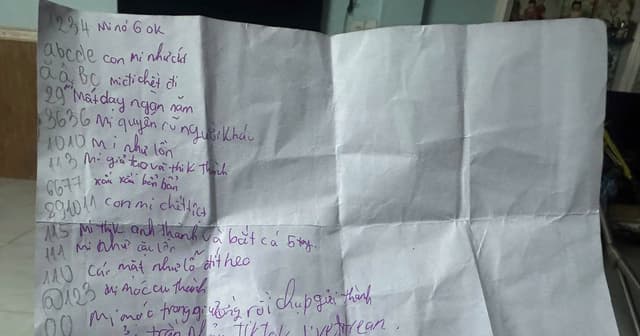 1234 Mi nó Gok
abcde con mi như cứt
ăâbc mi đi chết đi
29 Mất day ngàn năm
3636 Mị quyến rũ người khác
1010 Mi như lồn
113 Mi giả tạo và thik Thành
6677 xấu xấu bẩn bẩn
891011 con mi chết
115 Mi thik anh thanh và bắt cá 5 tay..
111 Mi như cái lồn
110 Cái mặt như lỗ đít heo
@123 Mi móc cu thành
00 Mi móc trong giường rồi chụp gửi thành
trần tiktok livetrean.